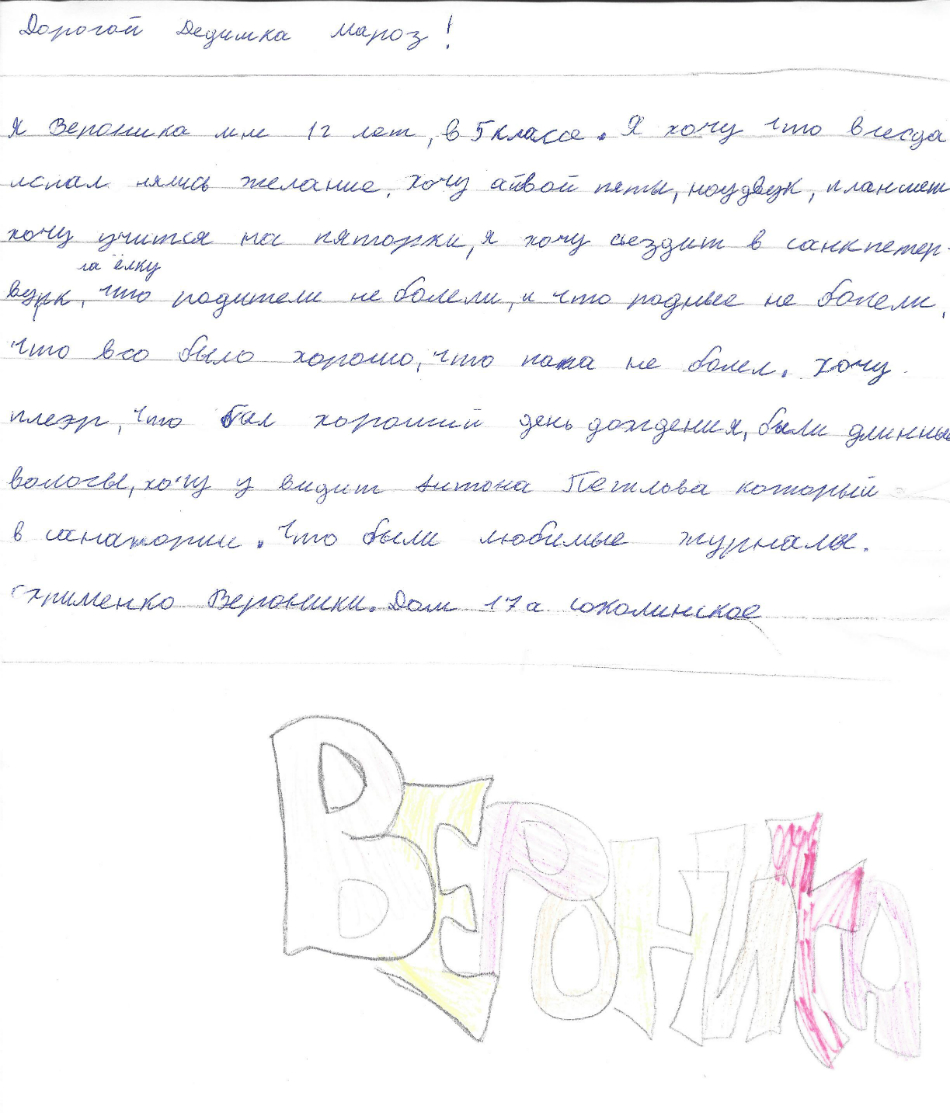 Дорогой Дедишка Мароз!
Я Вероника мне 12 лет, в 5 класе. Я хочу что всегда
испал нялись желание, хочу айвой пяты, ноудвук, планшет
хочу учится на пяторки, я хочу сьездит в санкпетер-
на ёлку
вурк, что родители не болели, и что родные не болели,
что всо было хорошо, что папа не болел. хочу
плеэр, что бал хороший день дождения, были длинные
волосы, хочу у видит Антона Петлова который
в санатории. Что были любимые журналы.
Вероники. Дом 17а соколинское
ВЕРОНИКА